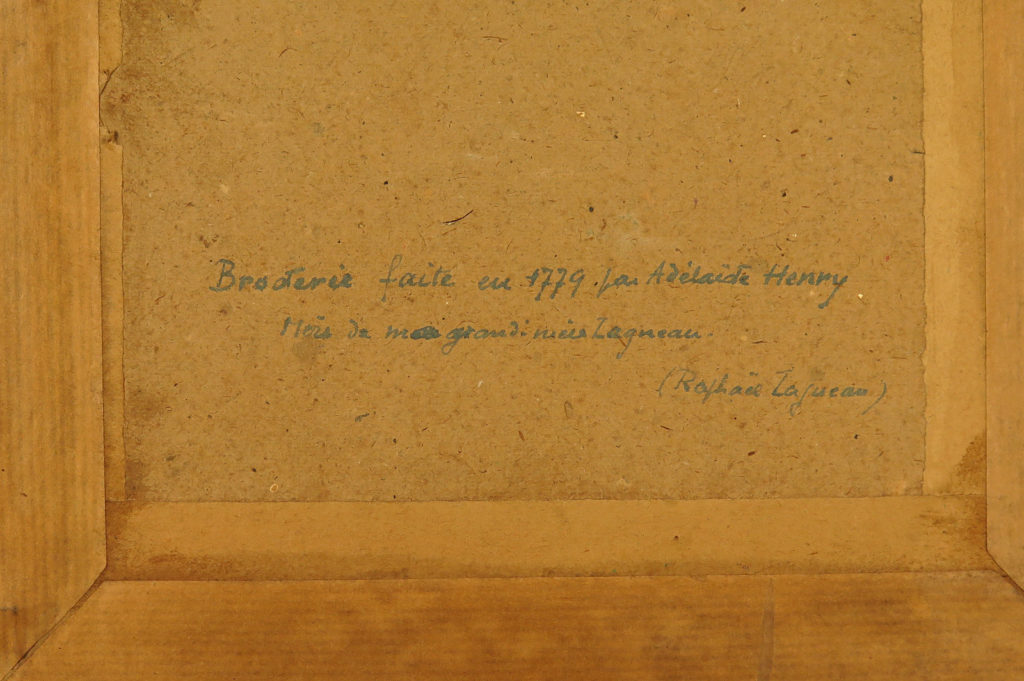 Broderie faite en 1779 par Adélaïde Henry
de ma grand'mère Lagneau.
(Raphaël Lagneau)